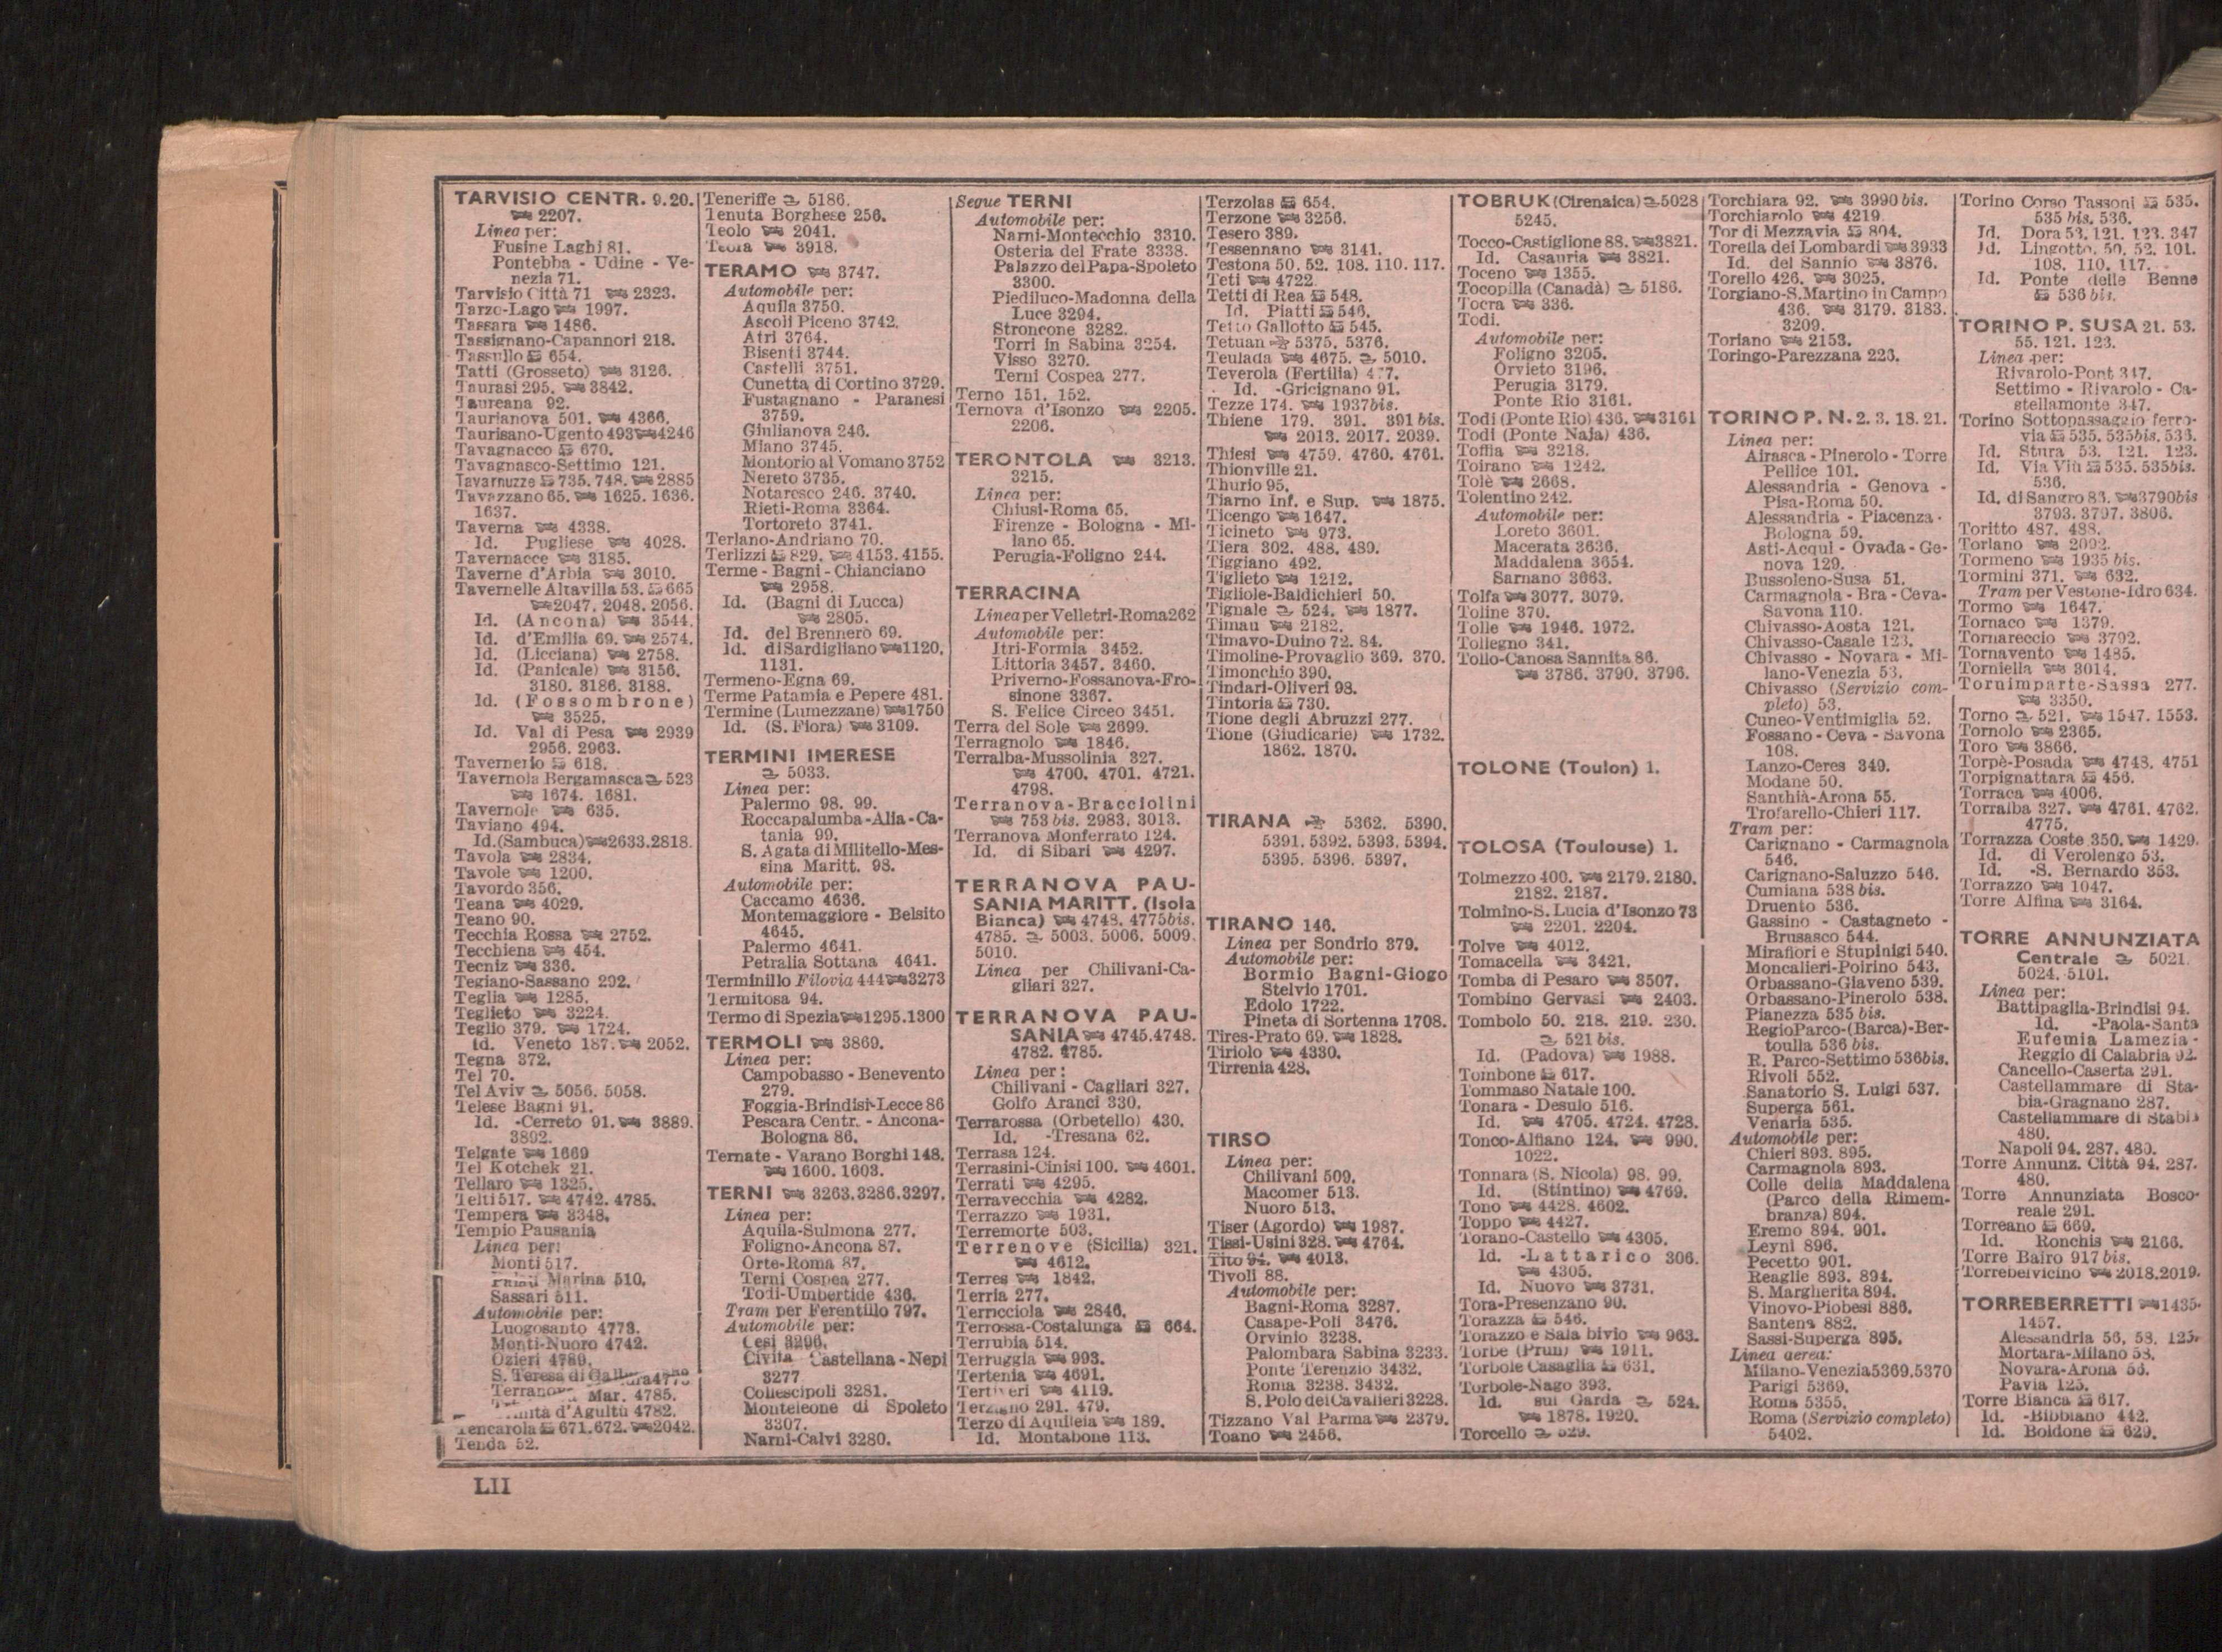 TARVISIO CENTR. 9.20.
2207.
Linea per:
Fusine Laghi 81.
Pontebba - Udine - Ve-
nezia 71.
Tarvisio Città 71 2323.
Tarzo-Lago 1997.
Tassara 1486.
Tassignano-Capannori 218.
Tassullo 654.
Tatti (Grosseto) 3126.
Taurasi 295. 3842.
Taureana 92.
Taurianova 501. 4366.
Taurisano-Ugento 493 4246
Tavagnacco 670.
Tavagnasco-Settimo 121.
Tavarnuzze 735. 748. 2885
Tavazzano 65. 1625. 1636.
1637.
Taverna 4338.
Id. Pugliese 4028.
Tavernacce 3185.
Taverne d'Arbia 3010.
Tavernelle Altavilla 53. 665
2047. 2048. 2056.
Id. (Ancona) 3544.
Id. d'Emilia 69. 2574.
Id. (Licciana) 2758.
Id. (Panicale) 3156.
3180. 3186. 3188.
Id. (Fossombrone)
3525.
Id. Val di Pesa 2939
2956. 2963.
Tavernerio 618.
Tavernola Bergamasca 523
1674. 1681.
Tavernole 635.
Taviano 494.
Id.(Sambuca) 2633.2818.
Tavola 2834.
Tavole 1200.
Tavordo 356.
Teana 4029.
Teano 90.
Tecchia Rossa 2752.
Tecchiena 454.
Tecniz 336.
Tegiano-Sassano 292.
Teglia 1285.
Teglieto 3224.
Teglio 379. 1724.
Id. Veneto 187. 2052.
Tegna 372.
Tel 70.
Tel Aviv 5056. 5058.
Telese Bagni 91.
Id. -Cerreto 91. 3889.
3892.
Telgate 1669
Tel Kotchek 21.
Tellaro 1325.
Telti 517. 4742. 4785.
Tempera 3348.
Tempio Pausania
Linea per:
Monti 517.
Marina 510.
Sassari 511.
Automobile per:
Luogosanto 4773.
Monti-Nuoro 4742.
Ozieri 4789.
S. Teresa di
Mar. 4785.
d'Agultu 4782.
Tencarola 671.672. 2042.
Tenda 52.
Teneriffe 5186.
Tenuta Borghese 256.
Teolo 2041.
Teora 3918.
TERAMO 3747.
Automobile per:
Aquila 3750.
Ascoli Piceno 3742.
Atri 3764.
Bisenti 3744.
Castelli 3751.
Cunetta di Cortino 3729.
Fustagnano - Paranesi
3759.
Giulianova 246.
Miano 3745.
Montorio al Vomano 3752
Nereto 3735.
Notaresco 246. 3740.
Rieti-Roma 3364.
Tortoreto 3741.
Terlano-Andriano 70.
Terlizzi 829. 4153. 4155.
Terme - Bagni - Chianciano
2958.
Id. (Bagni di Lucca)
2805.
Id. del Brennero 69.
Id. di Sardigliano 1120.
1131.
Termeno-Egna 69.
Terme Patamia e Pepere 481.
Termine (Lumezzane) 1750
Id. (S. Fiora) 3109.
TERMINI IMERESE
5033.
Linea per:
Palermo 98. 99.
Roccapalumba-Alia-Ca-
tania 99.
S. Agata di Militello-Mes-
sina Maritt. 98.
Automobile per:
Caccamo 4636.
Montemaggiore - Belsito
4645.
Palermo 4641.
Petralia Sottana 4641.
Terminillo Filovia 444 3273
Termitosa 94.
Termo di Spezia 1295.1300
TERMOLI 3869.
Linea per:
Campobasso - Benevento
279.
Foggia-Brindisi-Lecce 86
Pescara Centr. - Ancona-
Bologna 86.
Ternate - Varano Borghi 148.
1600. 1603.
TERNI 3263.3286.3297.
Linea per:
Aquila-Sulmona 277.
Foligno-Ancona 87.
Orte-Roma 87.
Terni Cospea 277.
Todi-Umbertide 436.
Tram per Ferentillo 797.
Automobile per:
Cesi 3296.
Civita Castellana - Nepi
3277
Collescipoli 3281.
Monteleone di Spoleto
3307.
Narni-Calvi 3280.
Segue TERNI
Automobile per:
Narni-Montecchio 3310.
Osteria del Frate 3338.
Palazzo del Papa-Spoleto
3300.
Piediluco-Madonna della
Luce 3294.
Stroncone 3282.
Torri in Sabina 3254.
Visso 3270.
Terni Cospea 277.
Terno 151. 152.
Ternova d'Isonzo 2205.
2206.
TERONTOLA 3213.
3215.
Linea per:
Chiusi-Roma 65.
Firenze - Bologna - Mi-
lano 65.
Perugia-Foligno 244.
TERRACINA
Linea per Velletri-Roma 262
Automobile per:
Itri-Formia 3452.
Littoria 3457. 3460.
Priverno-Fossanova-Fro-
sinone 3367.
S. Felice Circeo 3451.
Terra del Sole 2699.
Terragnolo 1846.
Terralba-Mussolinia 327.
4700. 4701. 4721.
4798.
Terranova-Bracciolini
753 bis. 2983. 3013.
Terranova Monferrato 124.
Id. di Sibari 4297.
TERRANOVA PAU-
SANIA MARITT. (Isola
Bianca) 4748. 4775bis.
4785. 5003. 5006. 5009.
5010.
Linea per Chilivani-Ca-
gliari 327.
TERRANOVA PAU-
SANIA 4745.4748.
4782. 4785.
Linea per:
Chilivani - Cagliari 327.
Golfo Aranci 330.
Terrarossa (Orbetello) 430.
Id. -Tresana 62.
Terrasa 124.
Terrasini-Cinisi 100. 4601.
Terrati 4295.
Terravecchia 4282.
Terrazzo 1931.
Terremorte 503.
Terrenove (Sicilia) 321.
4612.
Terres 1842.
Terria 277.
Terricciola 2846.
Terrossa-Costalunga 664.
Terrubia 514.
Terruggia 993.
Tertenia 4691.
Tertiveri 4119.
Terzigno 291. 479.
Terzo di Aquileia 189.
Id. Montabone 113.
Terzolas 654.
Terzone 3256.
Tesero 389.
Tessennano 3141.
Testona 50. 52. 108. 110. 117.
Teti 4722.
Tetti di Rea 548.
Id. Piatti 546.
Tetto Gallotto 545.
Tetuan 5375. 5376.
Teulada 4675. 5010.
Teverola (Fertilia)
Id. -Gricignano 91.
Tezze 174. 1937bis.
Thiene 179. 391. 391 bis.
2013. 2017. 2039.
Thiesi 4759. 4760. 4761.
Thionville 21.
Thurio 95.
Tiarno Inf. e Sup. 1875.
Ticengo 1647.
Ticineto 973.
Tiera 302. 488. 489.
Tiggiano 492.
Tiglieto 1212.
Tigliole-Baldichieri 50.
Tignale 524. 1877.
Timau 2182.
Timavo-Duino 72. 84.
Timoline-Provaglio 369. 370.
Timonchio 390.
Tindari-Oliveri 98.
Tintoria 730.
Tione degli Abruzzi 277.
Tione (Giudicarie) 1732.
1862. 1870.
TIRANA 5362. 5390.
5391. 5392. 5393. 5394.
5395. 5396. 5397.
TIRANO 146.
Linea per Sondrio 379.
Automobile per:
Bormio Bagni-Giogo
Stelvio 1701.
Edolo 1722.
Pineta di Sortenna 1708.
Tires-Prato 69. 1828.
Tiriolo 4330.
Tirrenia 428.
TIRSO
Linea per:
Chilivani 509.
Macomer 513.
Nuoro 513.
Tiser (Agordo) 1987.
Tissi-Usini 328. 4764.
Tito 94. 4013.
Tivoli 88.
Automobile per:
Bagni-Roma 3287.
Casape-Poli 3476.
Orvinio 3238.
Palombara Sabina 3233.
Ponte Terenzio 3432.
Roma 3238. 3432.
S. Polo dei Cavalieri 3228.
Tizzano Val Parma 2379.
Toano 2456.
TOBRUK (Cirenaica) 5028
5245.
Tocco-Castiglione 88. 3821.
Id. Casauria 3821.
Toceno 1355.
Tocopilla (Canadà) 5186.
Tocra 336.
Todi.
Automobile per:
Foligno 3205.
Orvieto 3196.
Perugia 3179.
Ponte Rio 3161.
Todi (Ponte Rio) 436. 3161
Todi (Ponte Naja) 436.
Toffia 3218.
Toirano 1242.
Tolè 2668.
Tolentino 242.
Automobile per:
Loreto 3601.
Macerata 3636.
Maddalena 3654.
Sarnano 3663.
Tolfa 3077. 3079.
Toline 370.
Tolle 1946. 1972.
Tollegno 341.
Tollo-Canosa Sannita 86.
3786. 3790. 3796.
TOLONE (Toulon) 1.
TOLOSA (Toulouse) 1.
Tolmezzo 400. 2179. 2180.
2182. 2187.
Tolmino-S. Lucia d'Isonzo 73
2201. 2204.
Tolve 4012.
Tomacella 3421.
Tomba di Pesaro 3507.
Tombino Gervasi 2403.
Tombolo 50. 218. 219. 230.
521 bis.
Id. (Padova) 1988.
Tombone 617.
Tommaso Natale 100.
Tonara - Desulo 516.
Id. 4705. 4724. 4728.
Tonco-Alfiano 124. 990.
1022.
Tonnara (S. Nicola) 98. 99.
Id. (Stintino) 4769.
Tono 4428. 4602.
Toppo 4427.
Torano-Castello 4305.
Id. -Lattarico 306.
4305.
Id. Nuovo 3731.
Tora-Presenzano 90.
Torazza 546.
Torazzo e Sala bivio 963.
Torbe (Prun) 1911.
Torbole Casaglia 631.
Torbole-Nago 393.
Id. sul Garda 524.
1878. 1920.
Torcello 529.
Torchiara 92. 3990 bis.
Torchiarolo 4219
Tor di Mezzavia 804.
Torella dei Lombardi 3933
Id. del Sannio 3876.
Torello 426. 3025.
Torgiano-S.Martino in Campo
436. 3179. 3183.
3209.
Toriano 2153.
Toringo-Parezzana 223.
TORINO P. N. 2. 3. 18. 21.
Linea per:
Airasca - Pinerolo - Torre
Pellice 101.
Alessandria - Genova -
Pisa-Roma 50.
Alessandria - Piacenza -
Bologna 59.
Asti-Acqui - Ovada - Ge-
nova 129.
Bussoleno-Susa 51.
Carmagnola - Bra - Ceva-
Savona 110.
Chivasso-Aosta 121.
Chivasso-Casale 123.
Chivasso - Novara - Mi-
lano-Venezia 53.
Chivasso (Servizio com-
pleto) 53.
Cuneo-Ventimiglia 52.
Fossano - Ceva - Savona
108.
Lanzo-Ceres 349.
Modane 50.
Santhià-Arona 55.
Trofarello-Chieri 117.
Tram per:
Carignano - Carmagnola
546.
Carignano-Saluzzo 546.
Cumiana 538 bis.
Druento 536.
Gassino - Castagneto -
Brusasco 544.
Mirafiori e Stupinigi 540.
Moncalieri-Poirino 543.
Orbassano-Giaveno 539.
Orbassano-Pinerolo 538.
Pianezza 535 bis.
RegioParco-(Barca)-Ber-
toulla 536 bis.
R. Parco-Settimo 536bis.
Rivoli 552.
Sanatorio S. Luigi 537.
Superga 561.
Venaria 535.
Automobile per:
Chieri 893. 895.
Carmagnola 893.
Colle della Maddalena
(Parco della Rimem-
branza) 894.
Eremo 894. 901.
Leyni 896.
Pecetto 901.
Reaglie 893. 894.
S. Margherita 894.
Vinovo-Piobesi 886.
Santena 882.
Sassi-Superga 895.
Linea aerea:
Milano-Venezia 5369.5370
Parigi 5369.
Roma 5355.
Roma (Servizio completo)
5402.
Torino Corso Tassoni 535.
535 bis. 536.
Id. Dora 53. 121. 123. 347
Id. Lingotto. 50. 52. 101.
108. 110. 117.
Id. Ponte delle Benne
536 bis.
TORINO P. SUSA 21. 53.
55. 121. 123.
Linea per:
Rivarolo-Pont 347.
Settimo - Rivarolo - Ca-
stellamonte 347.
Torino Sottopassaggio ferro-
via 535. 535bis. 536.
Id. Stura 53. 121. 123.
Id. Via Viù 535. 535bis.
536.
Id. di Sangro 86. 3790bis
3793. 3797. 3806.
Toritto 487. 488.
Torlano 2092.
Tormeno 1935 bis.
Tormini 371. 632.
Tram per Vestone-Idro 634.
Tormo 1647.
Tornaco 1379.
Tornareccio 3792.
Tornavento 1485.
Torniella 3014.
Tornimparte-Sassa 277.
3350.
Torno 521. 1547. 1553.
Tornolo 2365.
Toro 3866.
Torpè-Posada 4748. 4751
Torpignattara 456.
Torraca 4006.
Torralba 327. 4761. 4762.
4775.
Torrazza Coste 350. 1429.
Id. di Verolengo 53.
Id. -S. Bernardo 353.
Torrazzo 1047.
Torre Alfina 3164.
TORRE ANNUNZIATA
Centrale 5021.
5024. 5101.
Linea per:
Battipaglia-Brindisi 94.
Id. -Paola-Santa
Eufemia Lamezia -
Reggio di Calabria 92.
Cancello-Caserta 291.
Castellammare di Sta-
bia-Gragnano 287.
Castellammare di Stabia
480.
Napoli 94. 287. 480.
Torre Annunz. Città 94. 287.
480.
Torre Annunziata Bosco-
reale 291.
Torreano 669.
Id. Ronchis 2166.
Torre Bairo 917 bis.
Torrebelvicino 2018.2019.
TORREBERRETTI 1435.
1457.
Alessandria 56. 58. 125.
Mortara-Milano 58.
Novara-Arona 56.
Pavia 125.
Torre Bianca 617.
Id. -Bibbiano 442.
Id. Boldone 629.
LII